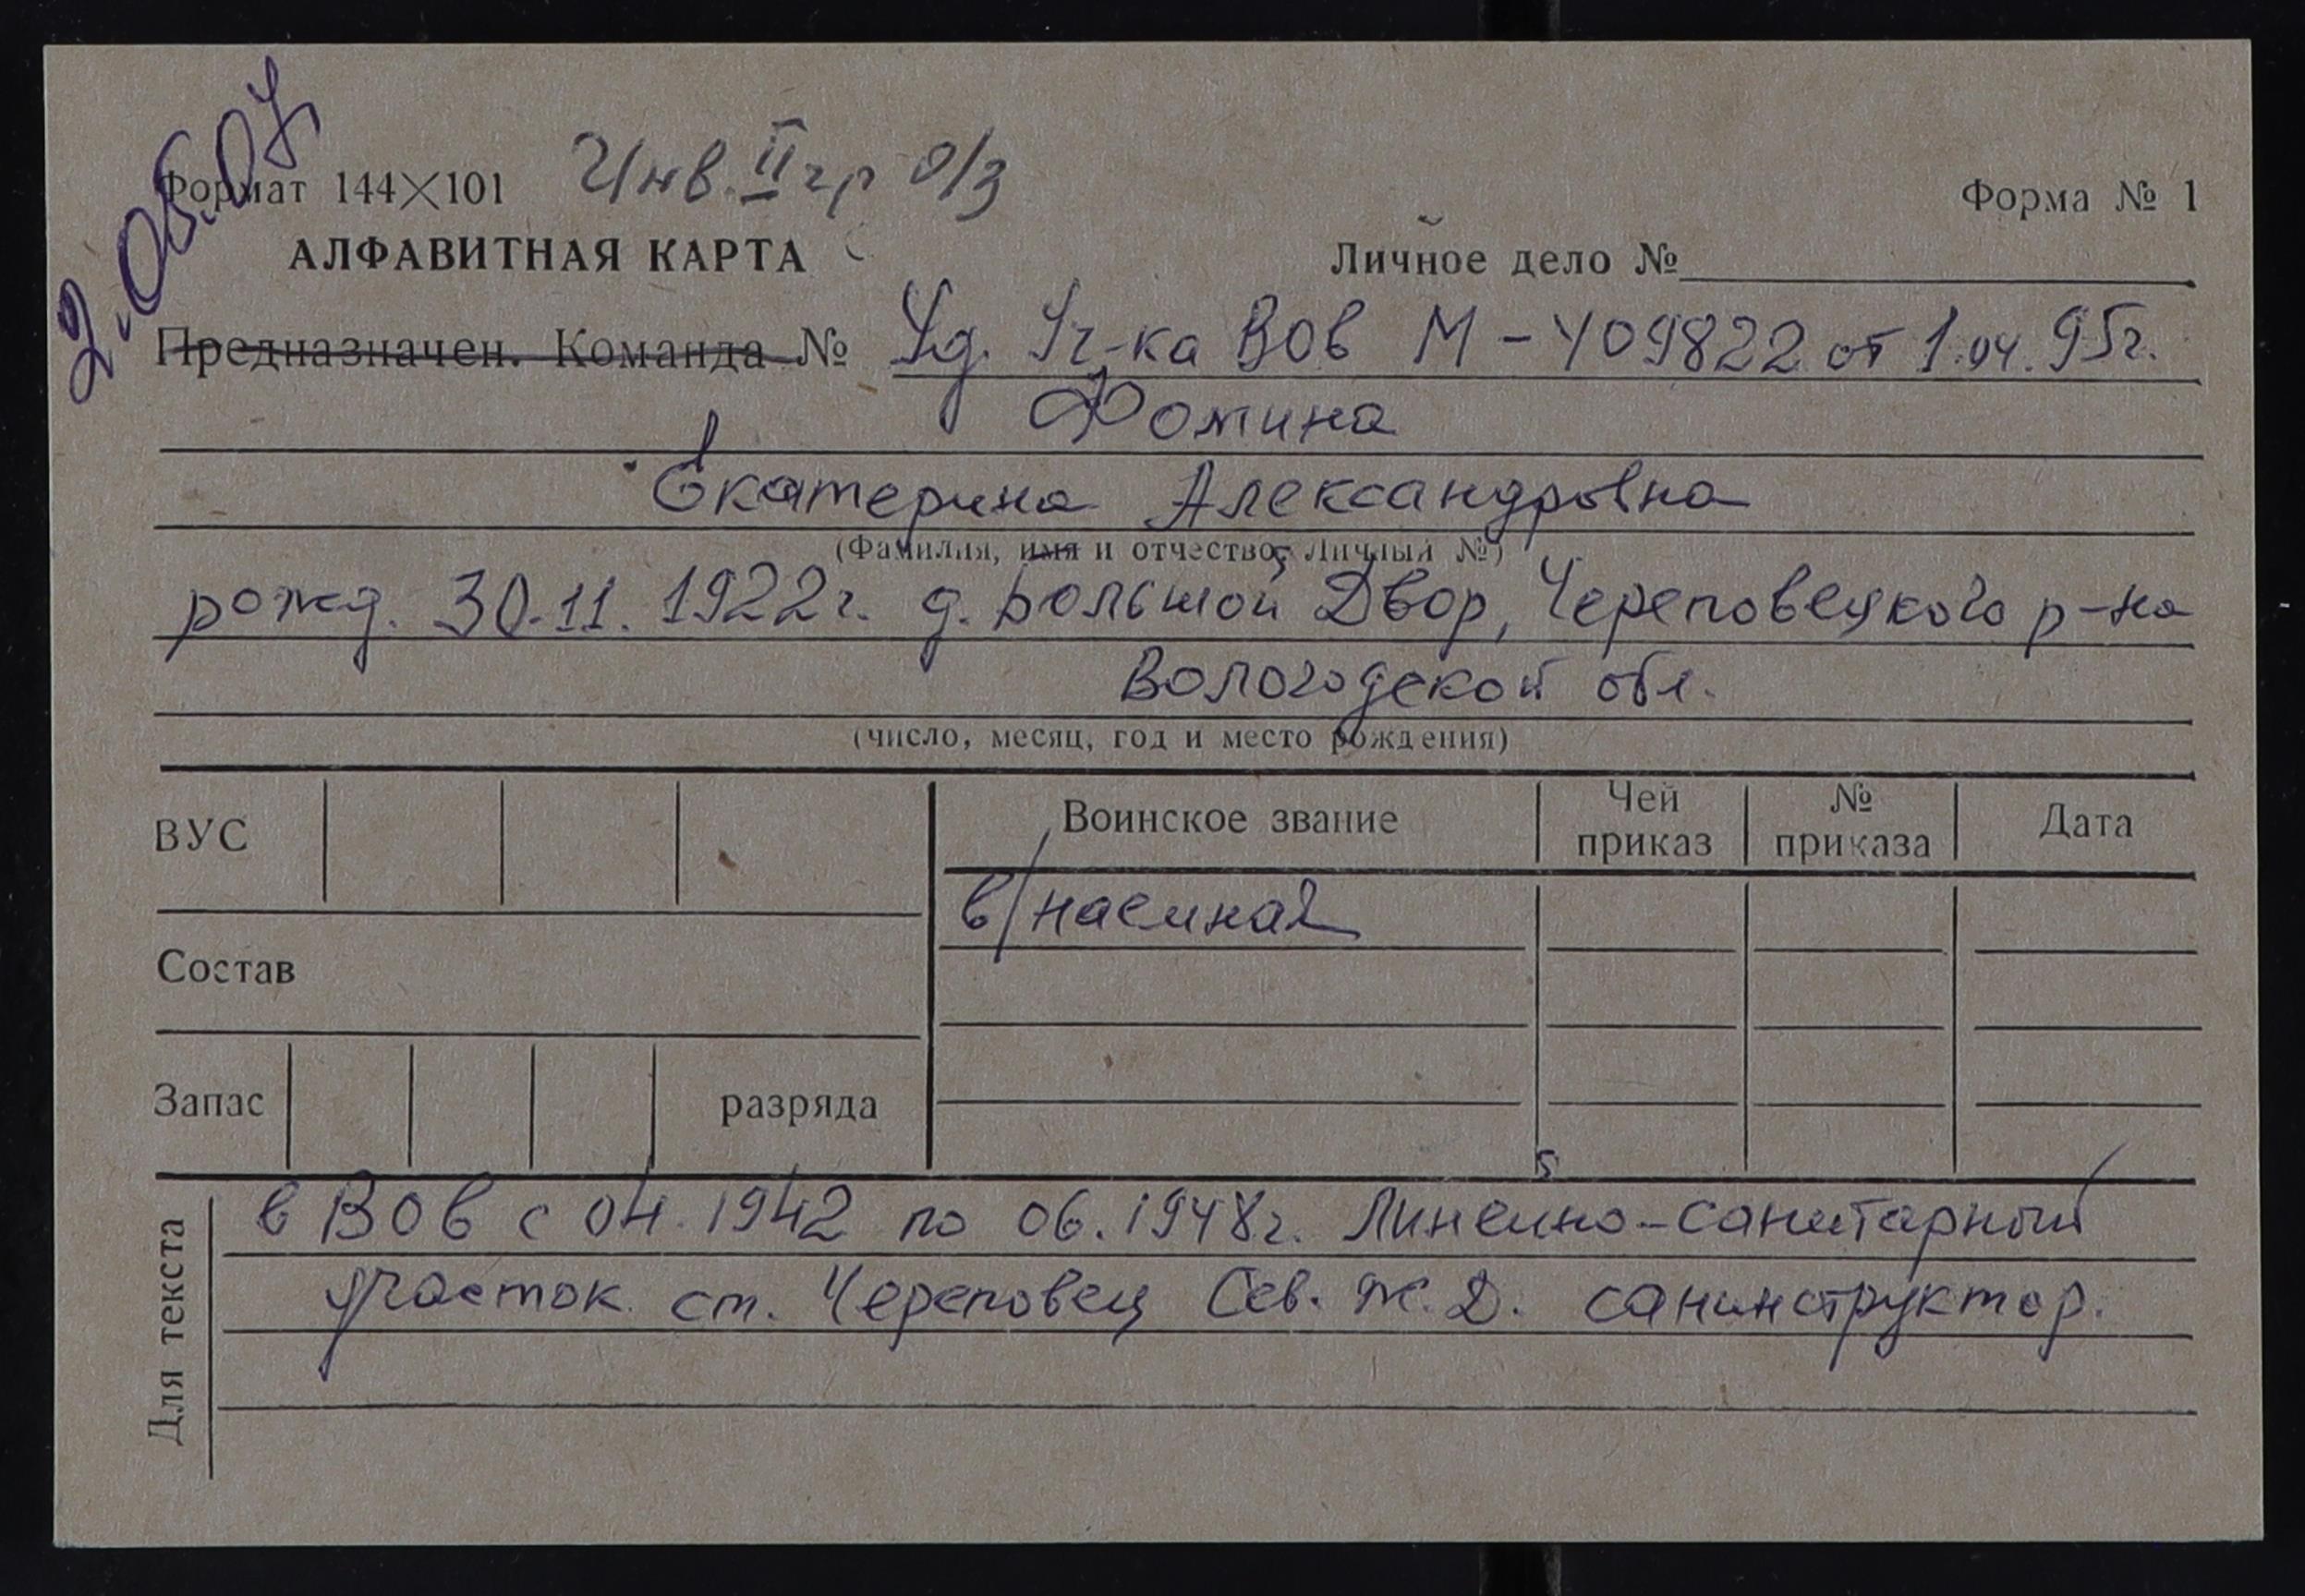 2.05.07
Формат 144×101 Инв. II гр о/з Форма № 1
АЛФАВИТНАЯ КАРТА Личное дело №
Предназначен. Команда № Уд. Уч-ка ВОв М-409822 от 1.04.95г.
Фомина
Екатерина Александровна
(Фамилия, имя и отчество, Личный №)
рожд. 30.11.1922г. д. Большой Двор, Череповецкого р-на
Вологодской обл.
(число, месяц, год и место рождения)
ВУС Воинское звание Чей приказ № приказа Дата
в/наемная
Состав
Запас разряда
Для текста
в ВОв с 04.1942 по 06.1948г. Линейно-санитарный
участок ст. Череповец Сев. Ж.Д. санинструктор.